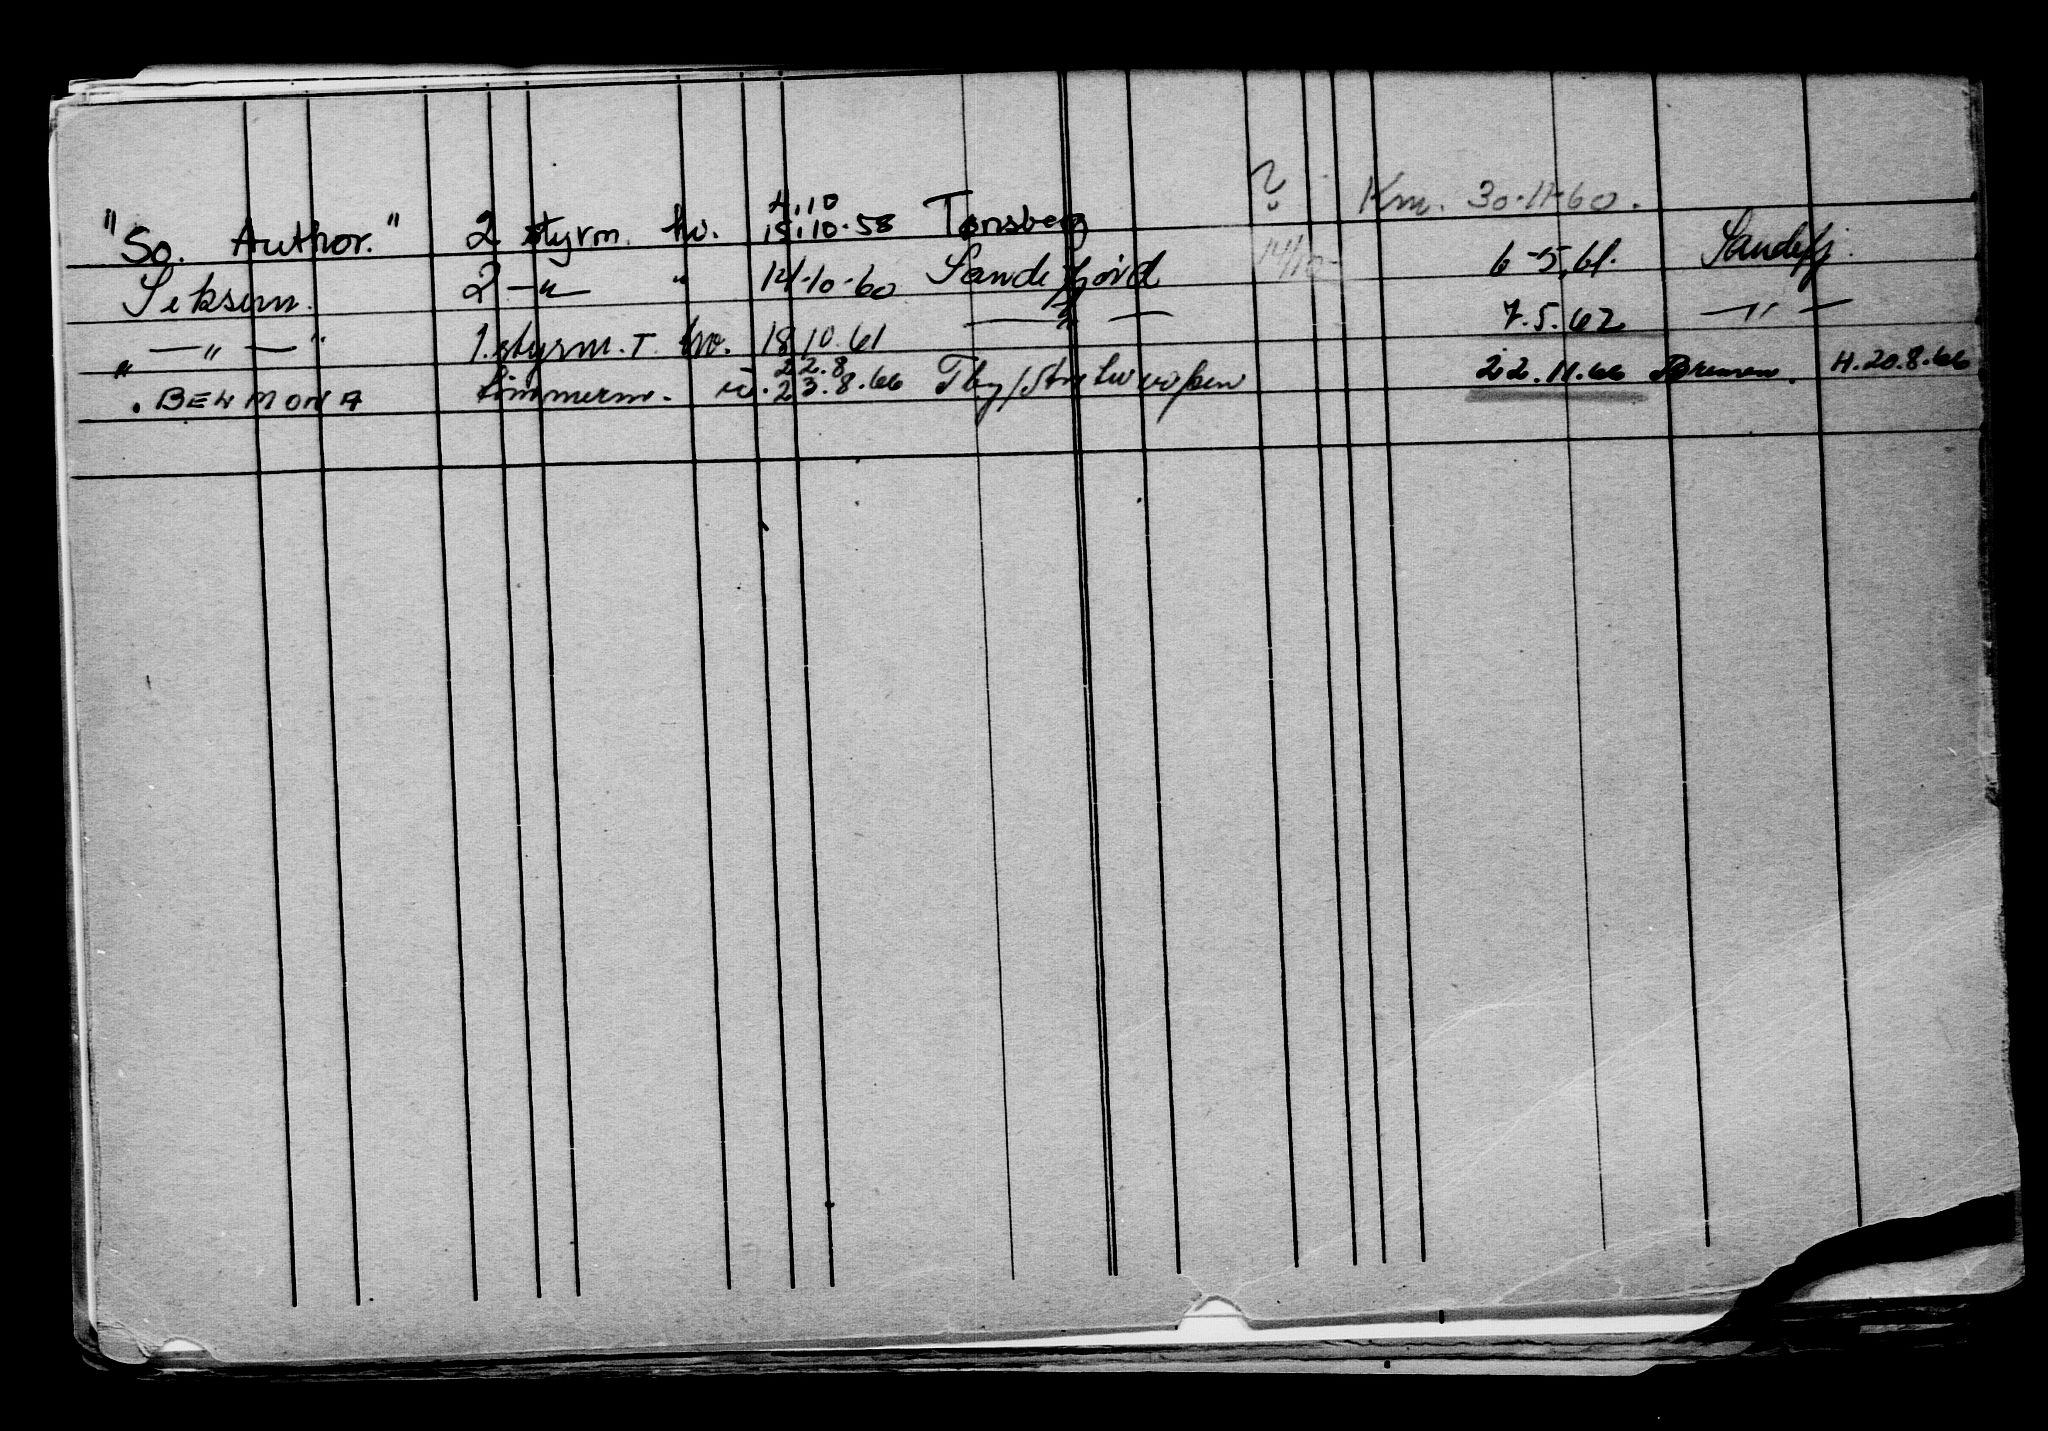 ? Km. 30-11-60.
"So. Author." 2 styrm. hv. 4.10 15.10.58 Tønsberg
2 —"— " 14-10-60 Sandefjord 14/10- 6-5.61. Sandefj.
—"— 1. styrm. T. hv. 18.10.61 —"— 7.5.62 —"—
" BELMONA tømmerm. 22.8 23.8.66 Tbg/Antwerpen 22.11.66 Bremen. H.20.8.66